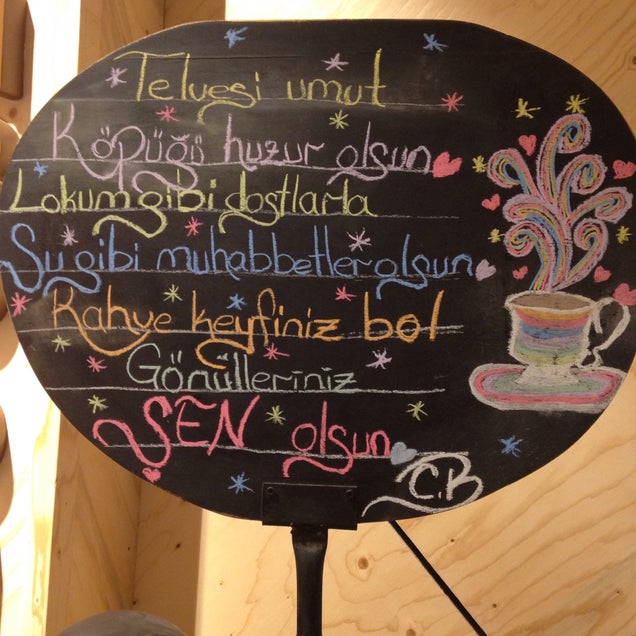 Telvesi umut
Köpüğü huzur olsun
Lokum gibi dostlarla
Su gibi muhabbetler olsun
Kahve keyfiniz bol
Gönülleriniz
ŞEN olsun
C.B